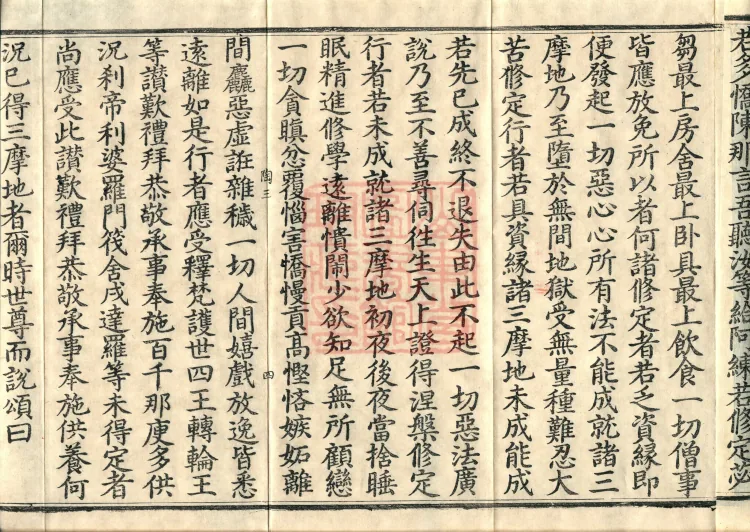 若多憍陳那言吾聽汝等給阿練若修定苾
芻最上房舍最上卧具最上飲食一切僧事
皆應放免所以者何諸修定者若乏資緣即
便發起一切惡心心所有法不能成就諸三
摩地乃至墮於無間地獄受無量種難忍大
苦修定行者若具資緣諸三摩地未成能成
若先已成終不退失由此不起一切惡法廣
說乃至不善尋伺往生天上證得涅槃修定
行者若未成就諸三摩地初夜後夜當捨睡
眠精進修學遠離憒閙少欲知足無所顧戀
一切貪瞋忿覆惱害憍慢貢髙慳悋嫉妬離
間麤惡虛誑雜穢一切人間嬉戲放逸皆悉
陶三
四
遠離如是行者應受釋梵護世四王轉輪王
等讃歎禮拜恭敬承事奉施百千那庾多供
況刹帝利婆羅門筏舍戌達羅等未得定者
尚應受此讃歎禮拜恭敬承事奉施供養何
況已得三摩地者爾時世尊而說頌曰